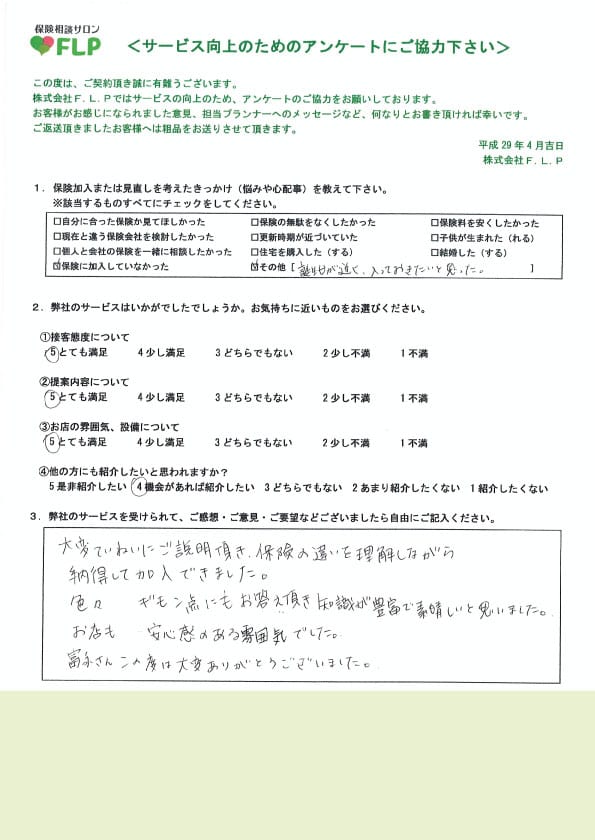 保険相談サロン
FLP
＜サービス向上のためのアンケートにご協力下さい＞
この度は、ご契約頂き誠に有難うございます。
株式会社Ｆ.Ｌ.Ｐではサービスの向上のため、アンケートのご協力をお願いしております。
お客様がお感じになられました意見、担当プランナーへのメッセージなど、何なりとお書き頂ければ幸いです。
ご返送頂きましたお客様へは粗品をお送りさせて頂きます。
平成 29 年 4 月吉日
株式会社Ｆ.Ｌ.Ｐ
１．保険加入または見直しを考えたきっかけ（悩みや心配事）を教えて下さい。
※該当するものすべてにチェックをしてください。
□自分に合った保険か見てほしかった □保険の無駄をなくしたかった □保険料を安くしたかった
□現在と違う保険会社を検討したかった □更新時期が近づいていた □子供が生まれた（れる）
□個人と会社の保険を一緒に相談したかった □住宅を購入した（する） □結婚した（する）
☑保険に加入していなかった ☑その他 [ 誕生日が近く、入っておきたいと思った。 ]
２．弊社のサービスはいかがでしたでしょうか。お気持ちに近いものをお選びください。
①接客態度について
5とても満足 4少し満足 3どちらでもない 2少し不満 1不満
②提案内容について
5とても満足 4少し満足 3どちらでもない 2少し不満 1不満
③お店の雰囲気、設備について
5とても満足 4少し満足 3どちらでもない 2少し不満 1不満
④他の方にも紹介したいと思われますか？
5是非紹介したい 4機会があれば紹介したい 3どちらでもない 2あまり紹介したくない 1紹介したくない
３．弊社のサービスを受けられて、ご感想・ご意見・ご要望などございましたら自由にご記入ください。
大変ていねいにご説明頂き、保険の違いを理解しながら
納得して加入できました。
色々 ギモン点にもお答え頂き知識が豊富で素晴しいと思いました。
お店も 安心感のある雰囲気でした。
富永さんこの度は大変ありがとうございました。